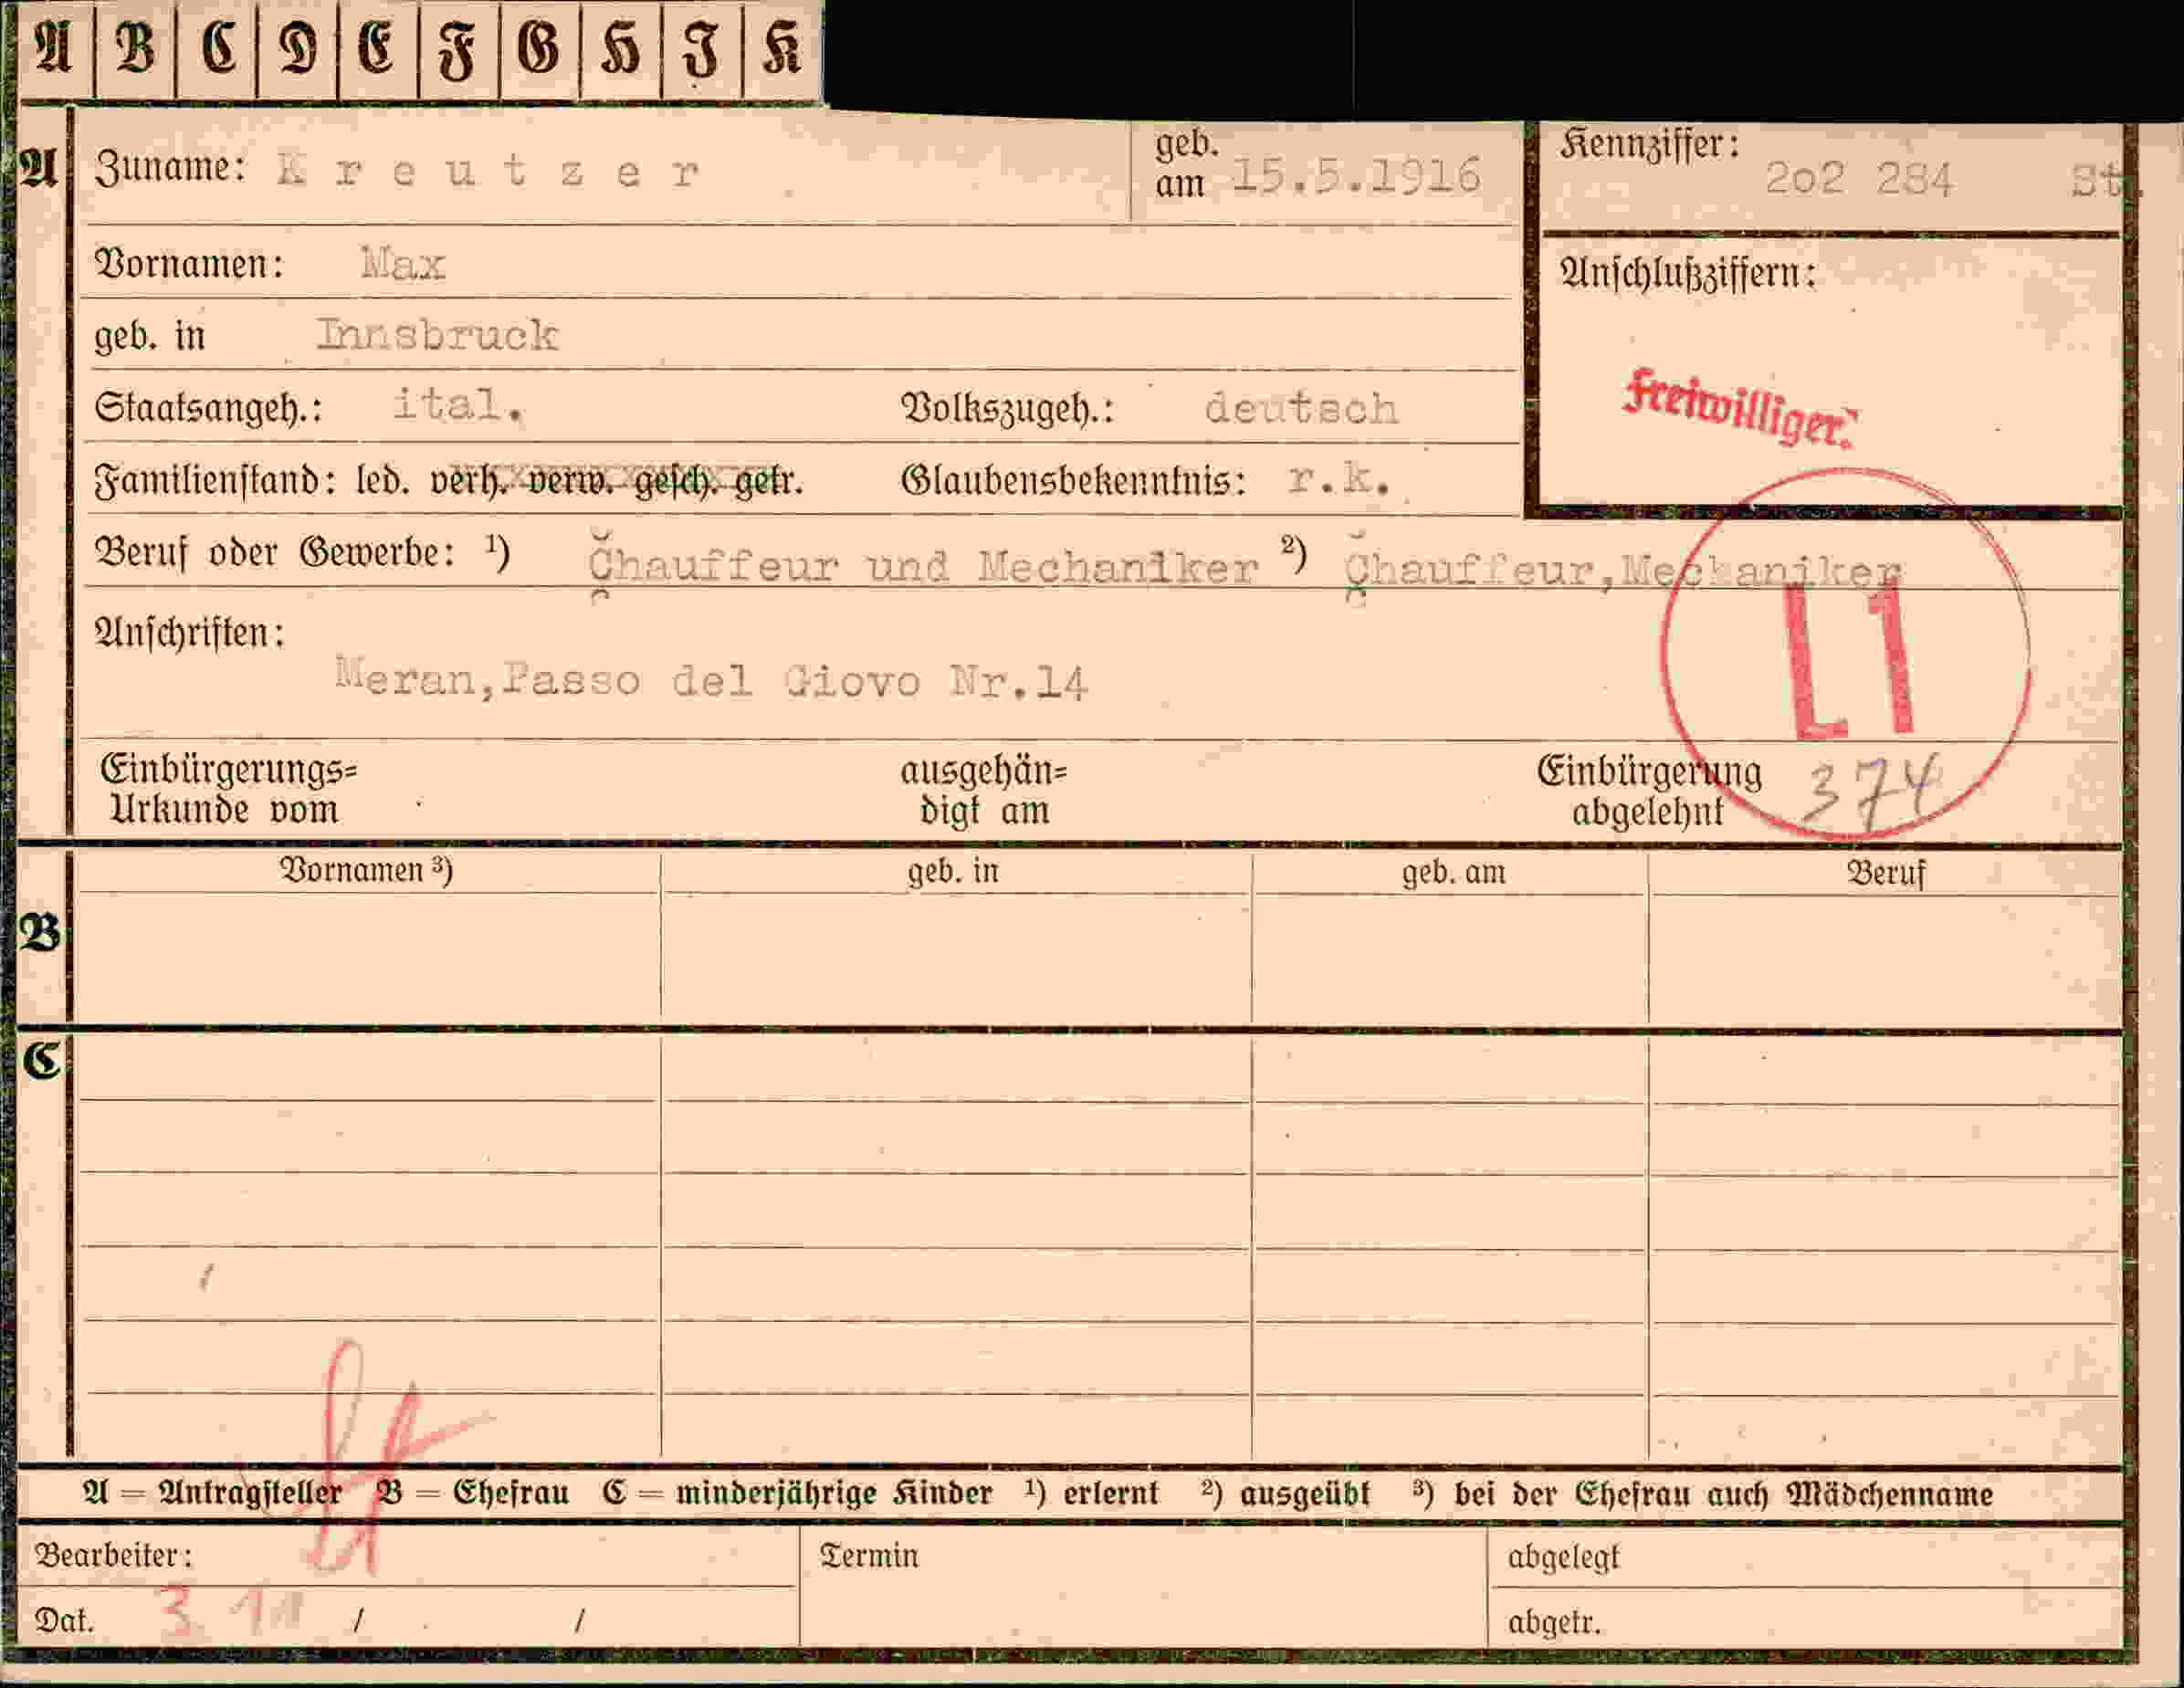 A B C D E F G H J K
A Zuname: Kreutzer geb. am 15.5.1916 Kennziffer: 2o2 284 St.
Vornamen: Max
Anschlußziffern:
geb. in Innsbruck
Staatsangeh.: ital. Volkszugeh.: deutsch
Freiwilliger.
Familienstand: led. verh. verw. gesch. getr. Glaubensbekenntnis: r.k.
Beruf oder Gewerbe: ¹) Chauffeur und Mechaniker ²) Chauffeur,Mechaniker
L1
Anschriften:
Meran,Passo del Giovo Nr.14
Einbürgerungs= ausgehän= Einbürgerung 374
Urkunde vom digt am abgelehnt
Vornamen ³) geb. in geb. am Beruf
B
C
A = Antragsteller B = Ehefrau C = minderjährige Kinder ¹) erlernt ²) ausgeübt ³) bei der Ehefrau auch Mädchenname
Bearbeiter: Termin abgelegt
Dat. / / abgetr.